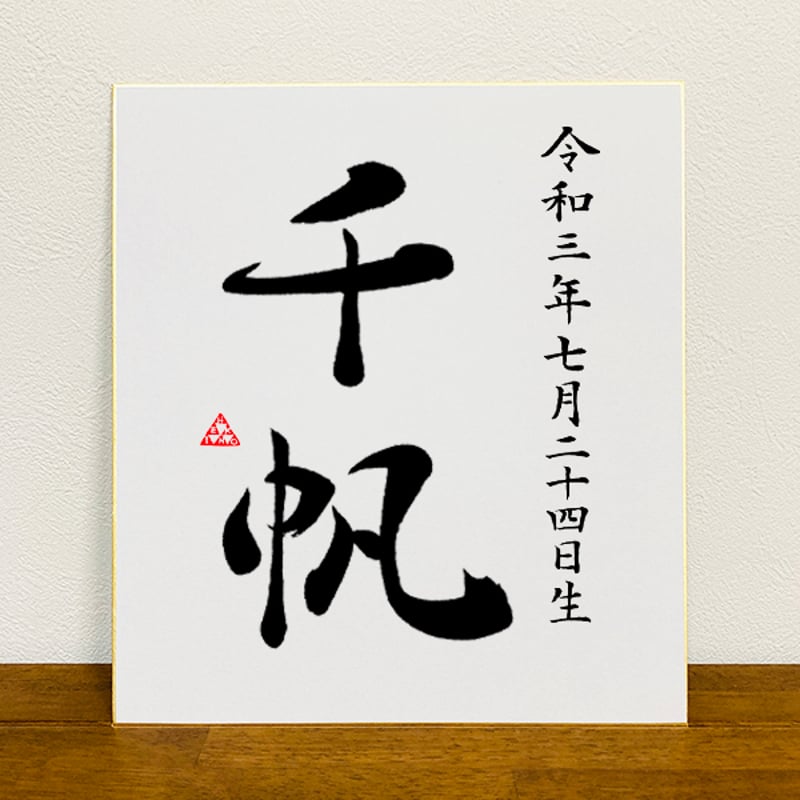 令和三年七月二十四日生
千帆